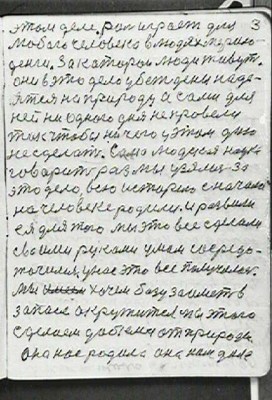 3
этом деле. Рол играет для
любого человека в людях тепло
деньги. За которое люди живут.
они в это дело убеждены наде-
ятся на природу а сами для
ней ни одного дня не провели
так чтобы ничего у этом духе
не сделать. Сама людская наука
говорить раз мы взялись за
это дело, всю историю сначала
на человеке родили. и развили
ея для того мы это все сделали
своими руками умом сосредо-
точился, у нас это все получилось.
мы хочем базу заиметь в
запасе окружится из этого
сделаем добычи от природы
она нас родила она нам дала